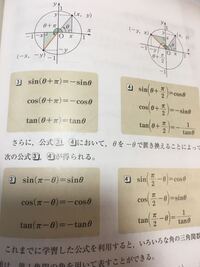 θ+π
(x, y)
(-x, -y)
(-y, x)
(x, y)
3 sin(θ+π)=-sinθ
cos(θ+π)=-cosθ
tan(θ+π)=-tanθ
4 sin(θ+π/2)=cosθ
cos(θ+π/2)=-sinθ
tan(θ+π/2)=-1/tanθ
さらに，公式3，4において，θを-θで置き換えることによって
次の公式3'，4'が得られる。
sin(π-θ)=sinθ
cos(π-θ)=-cosθ
tan(π-θ)=-tanθ
sin(π/2-θ)=cosθ
cos(π/2-θ)=sinθ
tan(π/2-θ)=1/tanθ
これまでに学習した公式を利用すると，いろいろな角の三角関数
の角を用いて表すことができる。